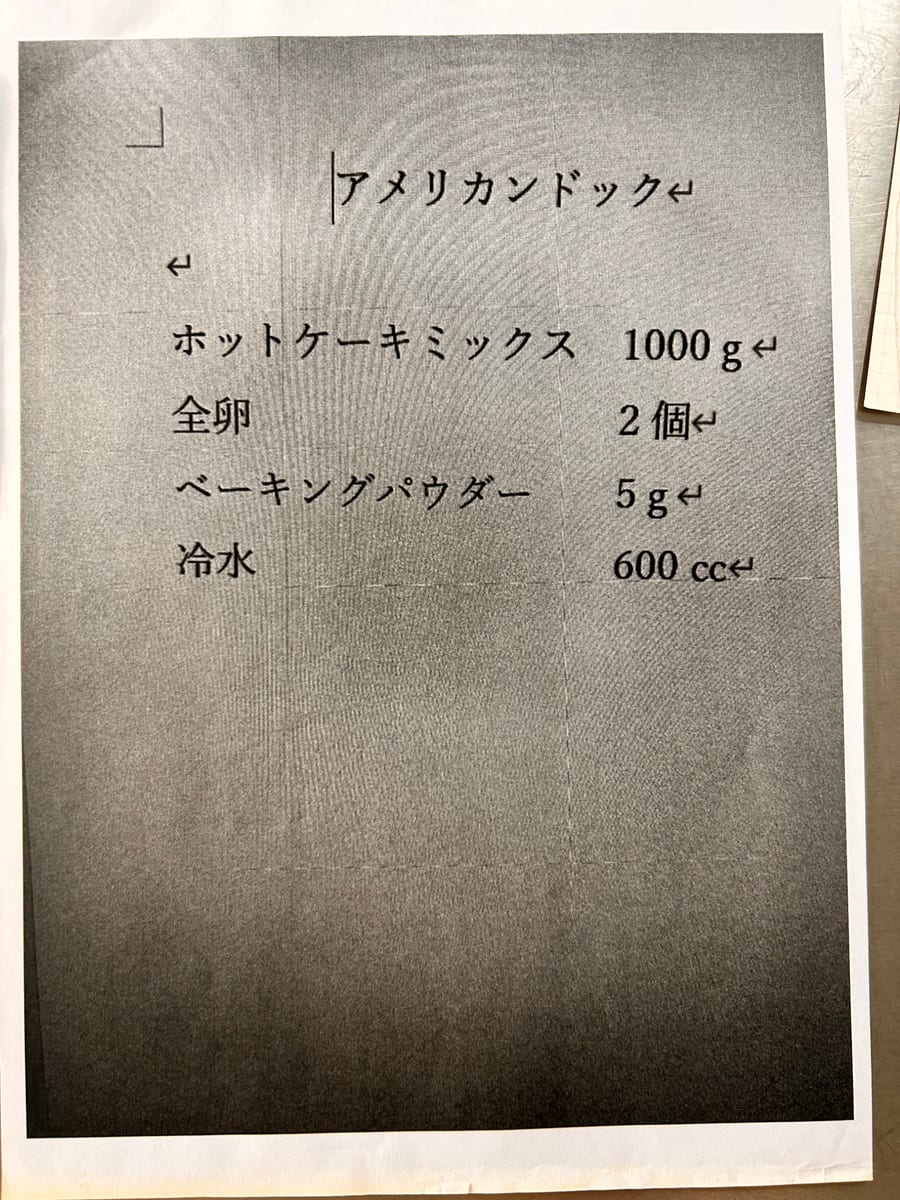 アメリカンドック↵
↵
ホットケーキミックス 1000 g↵
全卵 2 個↵
ベーキングパウダー 5 g↵
冷水 600 cc↵